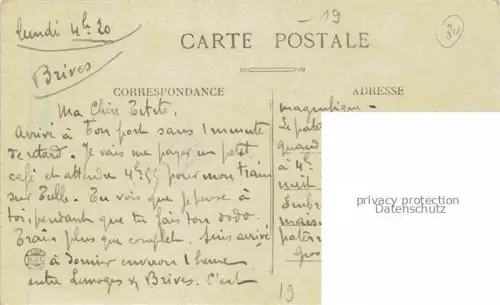 lundi 4h20
Brives
- 19
CARTE POSTALE
CORRESPONDANCE
ADRESSE
Ma Chère
arrivé à bon port sans 1 minute
de retard. Je vais me payer un petit
café et attendre 4h55 pour mon train
sur Tulle. Tu vois que je pense à
toi, pendant que tu fais ton dodo.
Train plus que complet. Suis arrivé
à dormir environ 1 heure
entre Limoges & Brives. C'est
magnifique -
Le
quand
à 4h.
nuit
privacy protection
Datenschutz
19